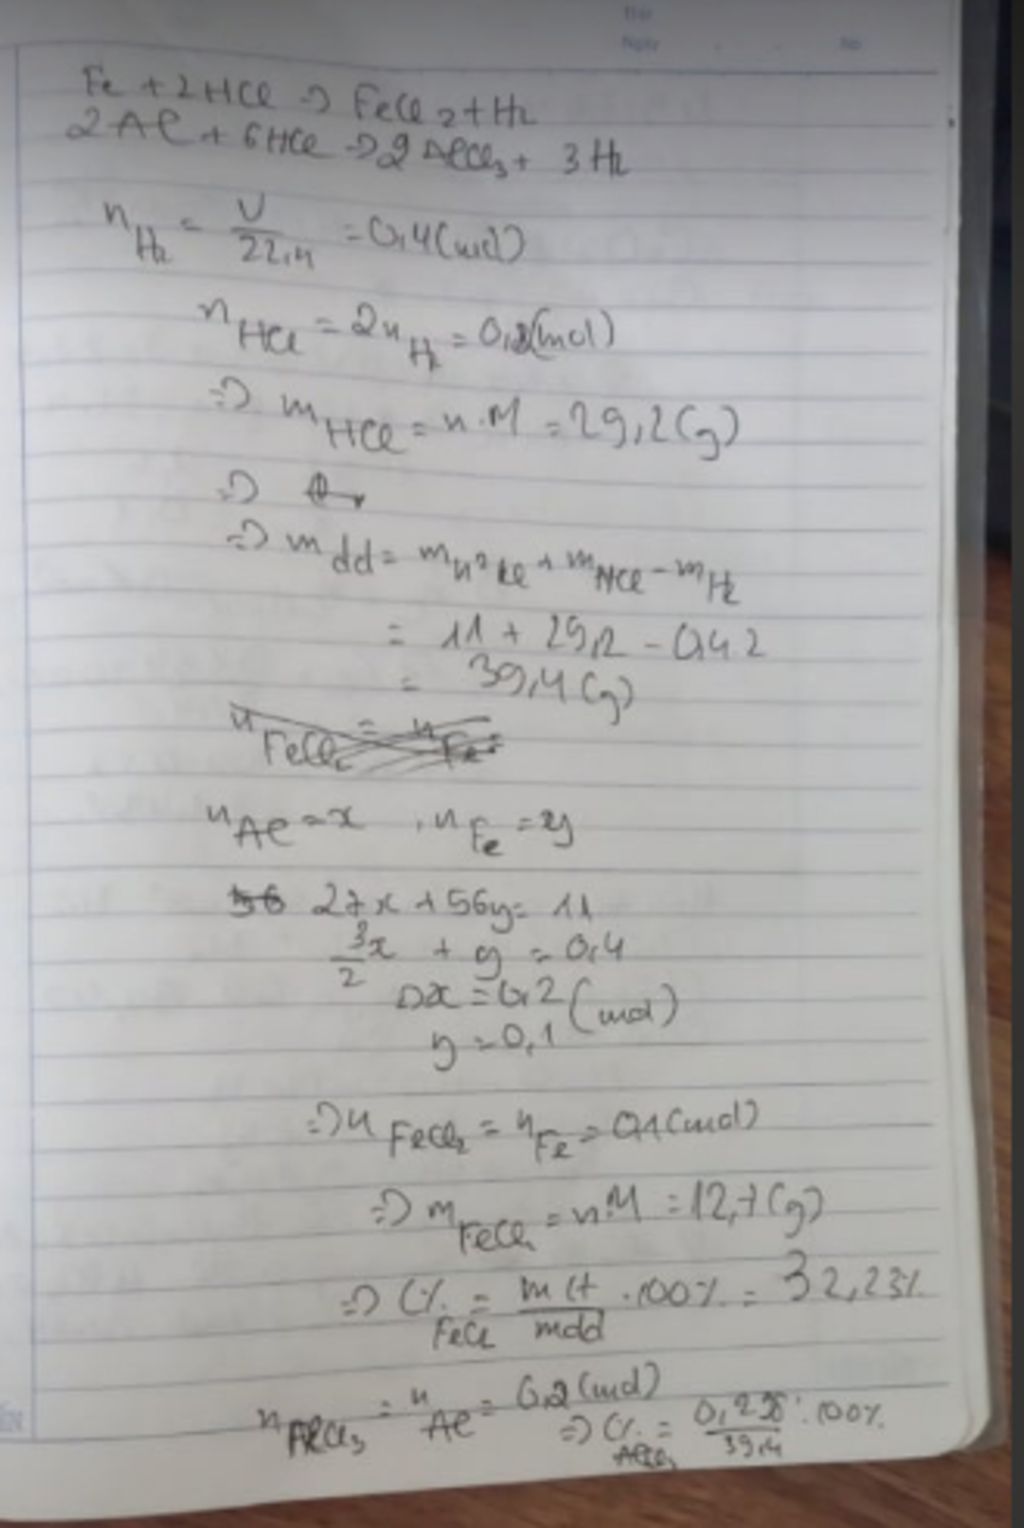 Ngày No
Fe + 2HCl => FeCl2 + H2
2Al + 6HCl => 2AlCl3 + 3H2
nH2 = V/22,4 = 0,4(mol)
nHCl = 2nH2 = 0,8(mol)
=> mHCl = n.M = 29,2(g)
=>
=> mdd = m + mHCl - mH2
= 11 + 29,2 - 0,4.2
= 39,4(g)
nFeCl2 = nFe =
nAl = x , nFe = y
56 27x + 56y = 11
3/2 x + y = 0,4
x = 0,2 (mol)
y = 0,1
=> nFeCl2 = nFe = 0,1(mol)
=> mFeCl2 = n.M = 12,7(g)
=> C%FeCl = mct/mdd .100% = 32,23%
nAlCl3 = nAl = 0,2(mol) => C%AlCl3 = /39,4 .100%